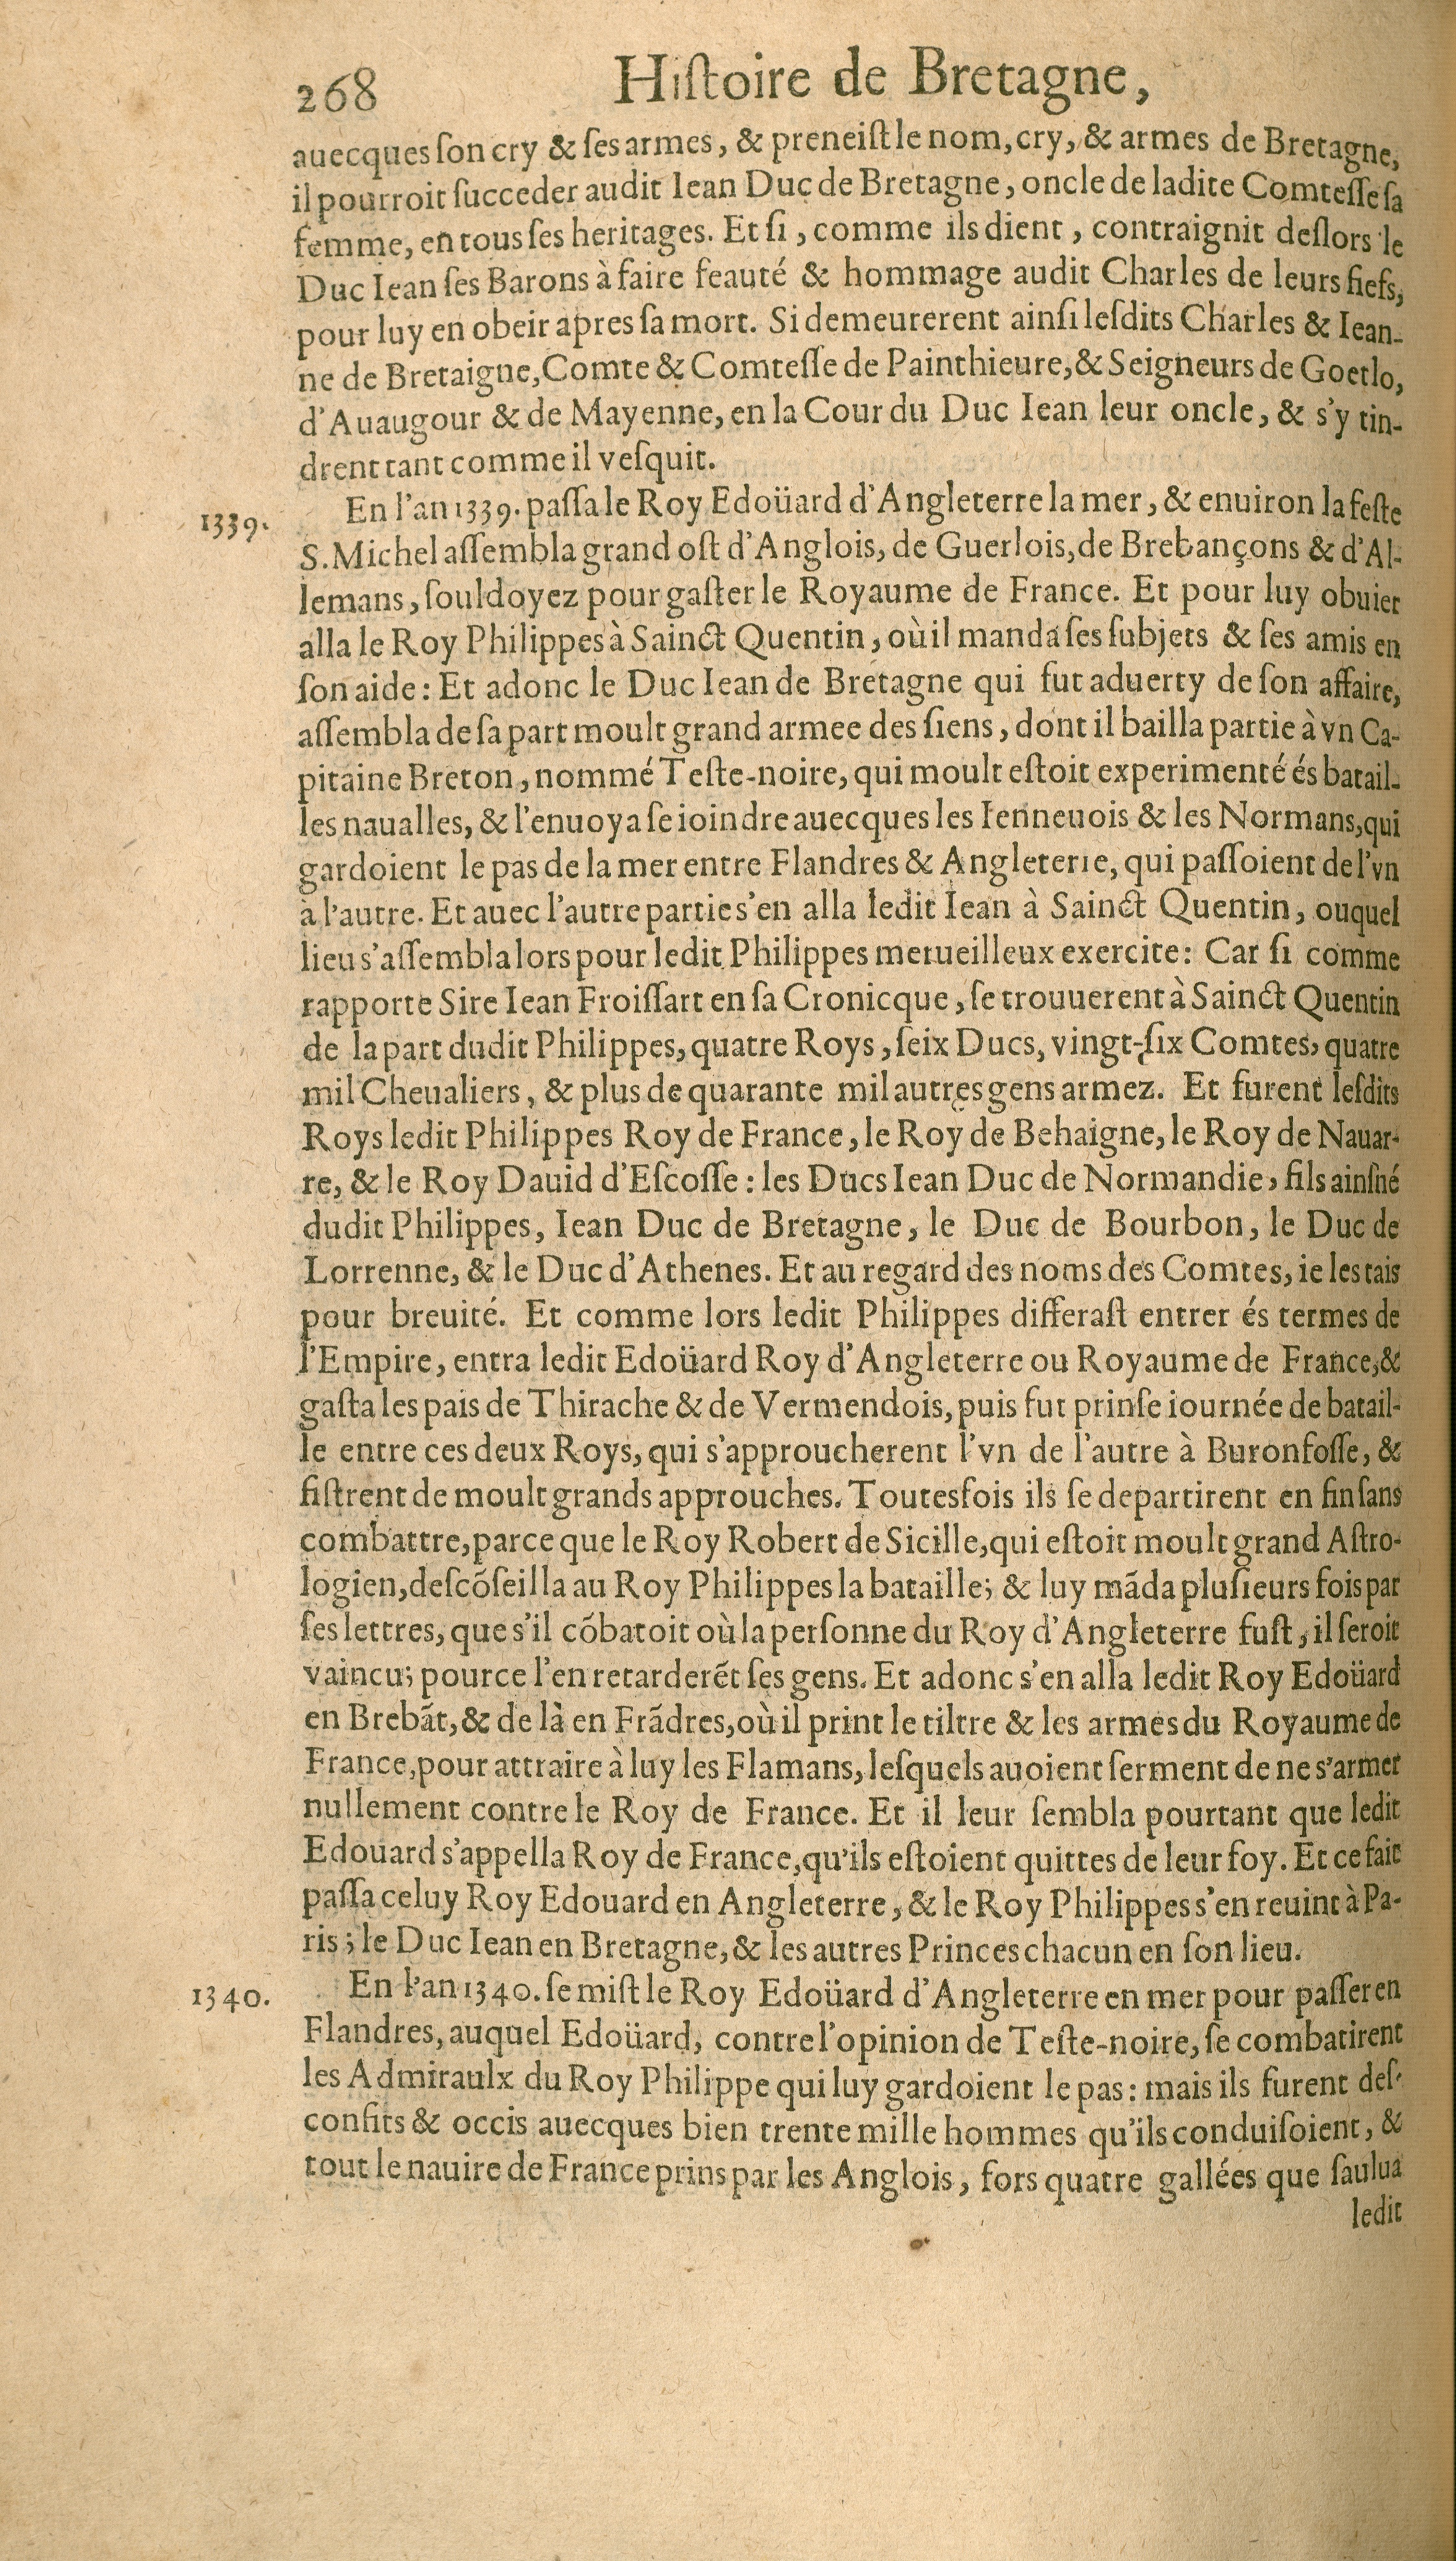 268 Hiſtoire de Bretagne,
auecques ſon cry & ſes armes, & preneiſt le nom, cry, & armes de Bretagne,
il pourroit ſucceder audit Iean Duc de Bretagne, oncle de ladite Comteſſe ſa
femme, en tous ſes heritages. Et ſi, comme ils dient, contraignit deſlors le
Duc Iean ſes Barons à faire feauté & hommage audit Charles de leurs fiefs,
pour luy en obeir apres ſa mort. Si demeurerent ainſi leſdits Charles & Iean-
ne de Bretaigne, Comte & Comteſſe de Painthieure, & Seigneurs de Goetlo,
d'Auaugour & de Mayenne, en la Cour du Duc Iean leur oncle, & s'y tin-
drent tant comme il veſquit.
1339. En l'an 1339. paſſa le Roy Edoüard d'Angleterre la mer, & enuiron la feſte
S. Michel aſſembla grand oſt d'Anglois, de Guerlois, de Brebançons & d'Al-
lemans, ſouldoyez pour gaſter le Royaume de France. Et pour luy obuier
alla le Roy Philippes à Sainct Quentin, où il manda ſes ſubjets & ſes amis en
ſon aide: Et adonc le Duc Iean de Bretagne qui fut aduerty de ſon affaire,
aſſembla de ſa part moult grand armee des ſiens, dont il bailla partie à vn Ca-
pitaine Breton, nommé Teſte-noire, qui moult eſtoit experimenté és batail-
les naualles, & l'enuoya ſe ioindre auecques les Ienneuois & les Normans, qui
gardoient le pas de la mer entre Flandres & Angleterre, qui paſſoient de l'vn
à l'autre. Et auec l'autre partie s'en alla ledit Iean à Sainct Quentin, ouquel
lieu s'aſſembla lors pour ledit Philippes merueilleux exercite: Car ſi comme
rapporte Sire Iean Froiſſart en ſa Cronicque, ſe trouuerent à Sainct Quentin
de la part dudit Philippes, quatre Roys, ſeix Ducs, vingt-ſix Comtes, quatre
mil Cheualiers, & plus de quarante mil autres gens armez. Et furent leſdits
Roys ledit Philippes Roy de France, le Roy de Behaigne, le Roy de Nauar-
re, & le Roy Dauid d'Eſcoſſe: les Ducs Iean Duc de Normandie, fils ainſné
dudit Philippes, Iean Duc de Bretagne, le Duc de Bourbon, le Duc de
Lorrenne, & le Duc d'Athenes. Et au regard des noms des Comtes, ie les tais
pour breuité. Et comme lors ledit Philippes differaſt entrer és termes de
l'Empire, entra ledit Edoüard Roy d'Angleterre ou Royaume de France, &
gaſta les pais de Thirache & de Vermendois, puis fut prinſe iournée de batail-
le entre ces deux Roys, qui s'approucherent l'vn de l'autre à Buronfoſſe, &
fiſtrent de moult grands approuches. Toutesfois ils ſe departirent en fin ſans
combattre, parce que le Roy Robert de Sicille, qui eſtoit moult grand Aſtro-
logien, deſcõſeilla au Roy Philippes la bataille; & luy mãda pluſieurs fois par
ſes lettres, que s'il cõbatoit où la perſonne du Roy d'Angleterre fuſt, il ſeroit
vaincu; pource l'en retarderẽt ſes gens. Et adonc s'en alla ledit Roy Edoüard
en Brebãt, & de là en Frãdres, où il print le tiltre & les armes du Royaume de
France, pour attraire à luy les Flamans, leſquels auoient ſerment de ne s'armer
nullement contre le Roy de France. Et il leur ſembla pourtant que ledit
Edouard s'appella Roy de France, qu'ils eſtoient quittes de leur foy. Et ce fait
paſſa celuy Roy Edouard en Angleterre, & le Roy Philippes s'en reuint à Pa-
ris; le Duc Iean en Bretagne, & les autres Princes chacun en ſon lieu.
1340. En l'an 1340. ſe miſt le Roy Edoüard d'Angleterre en mer pour paſſer en
Flandres, auquel Edoüard, contre l'opinion de Teſte-noire, ſe combatirent
les Admiraulx du Roy Philippe qui luy gardoient le pas: mais ils furent deſ-
confits & occis auecques bien trente mille hommes qu'ils conduiſoient, &
tout le nauire de France prins par les Anglois, fors quatre gallées que ſaulua
ledit